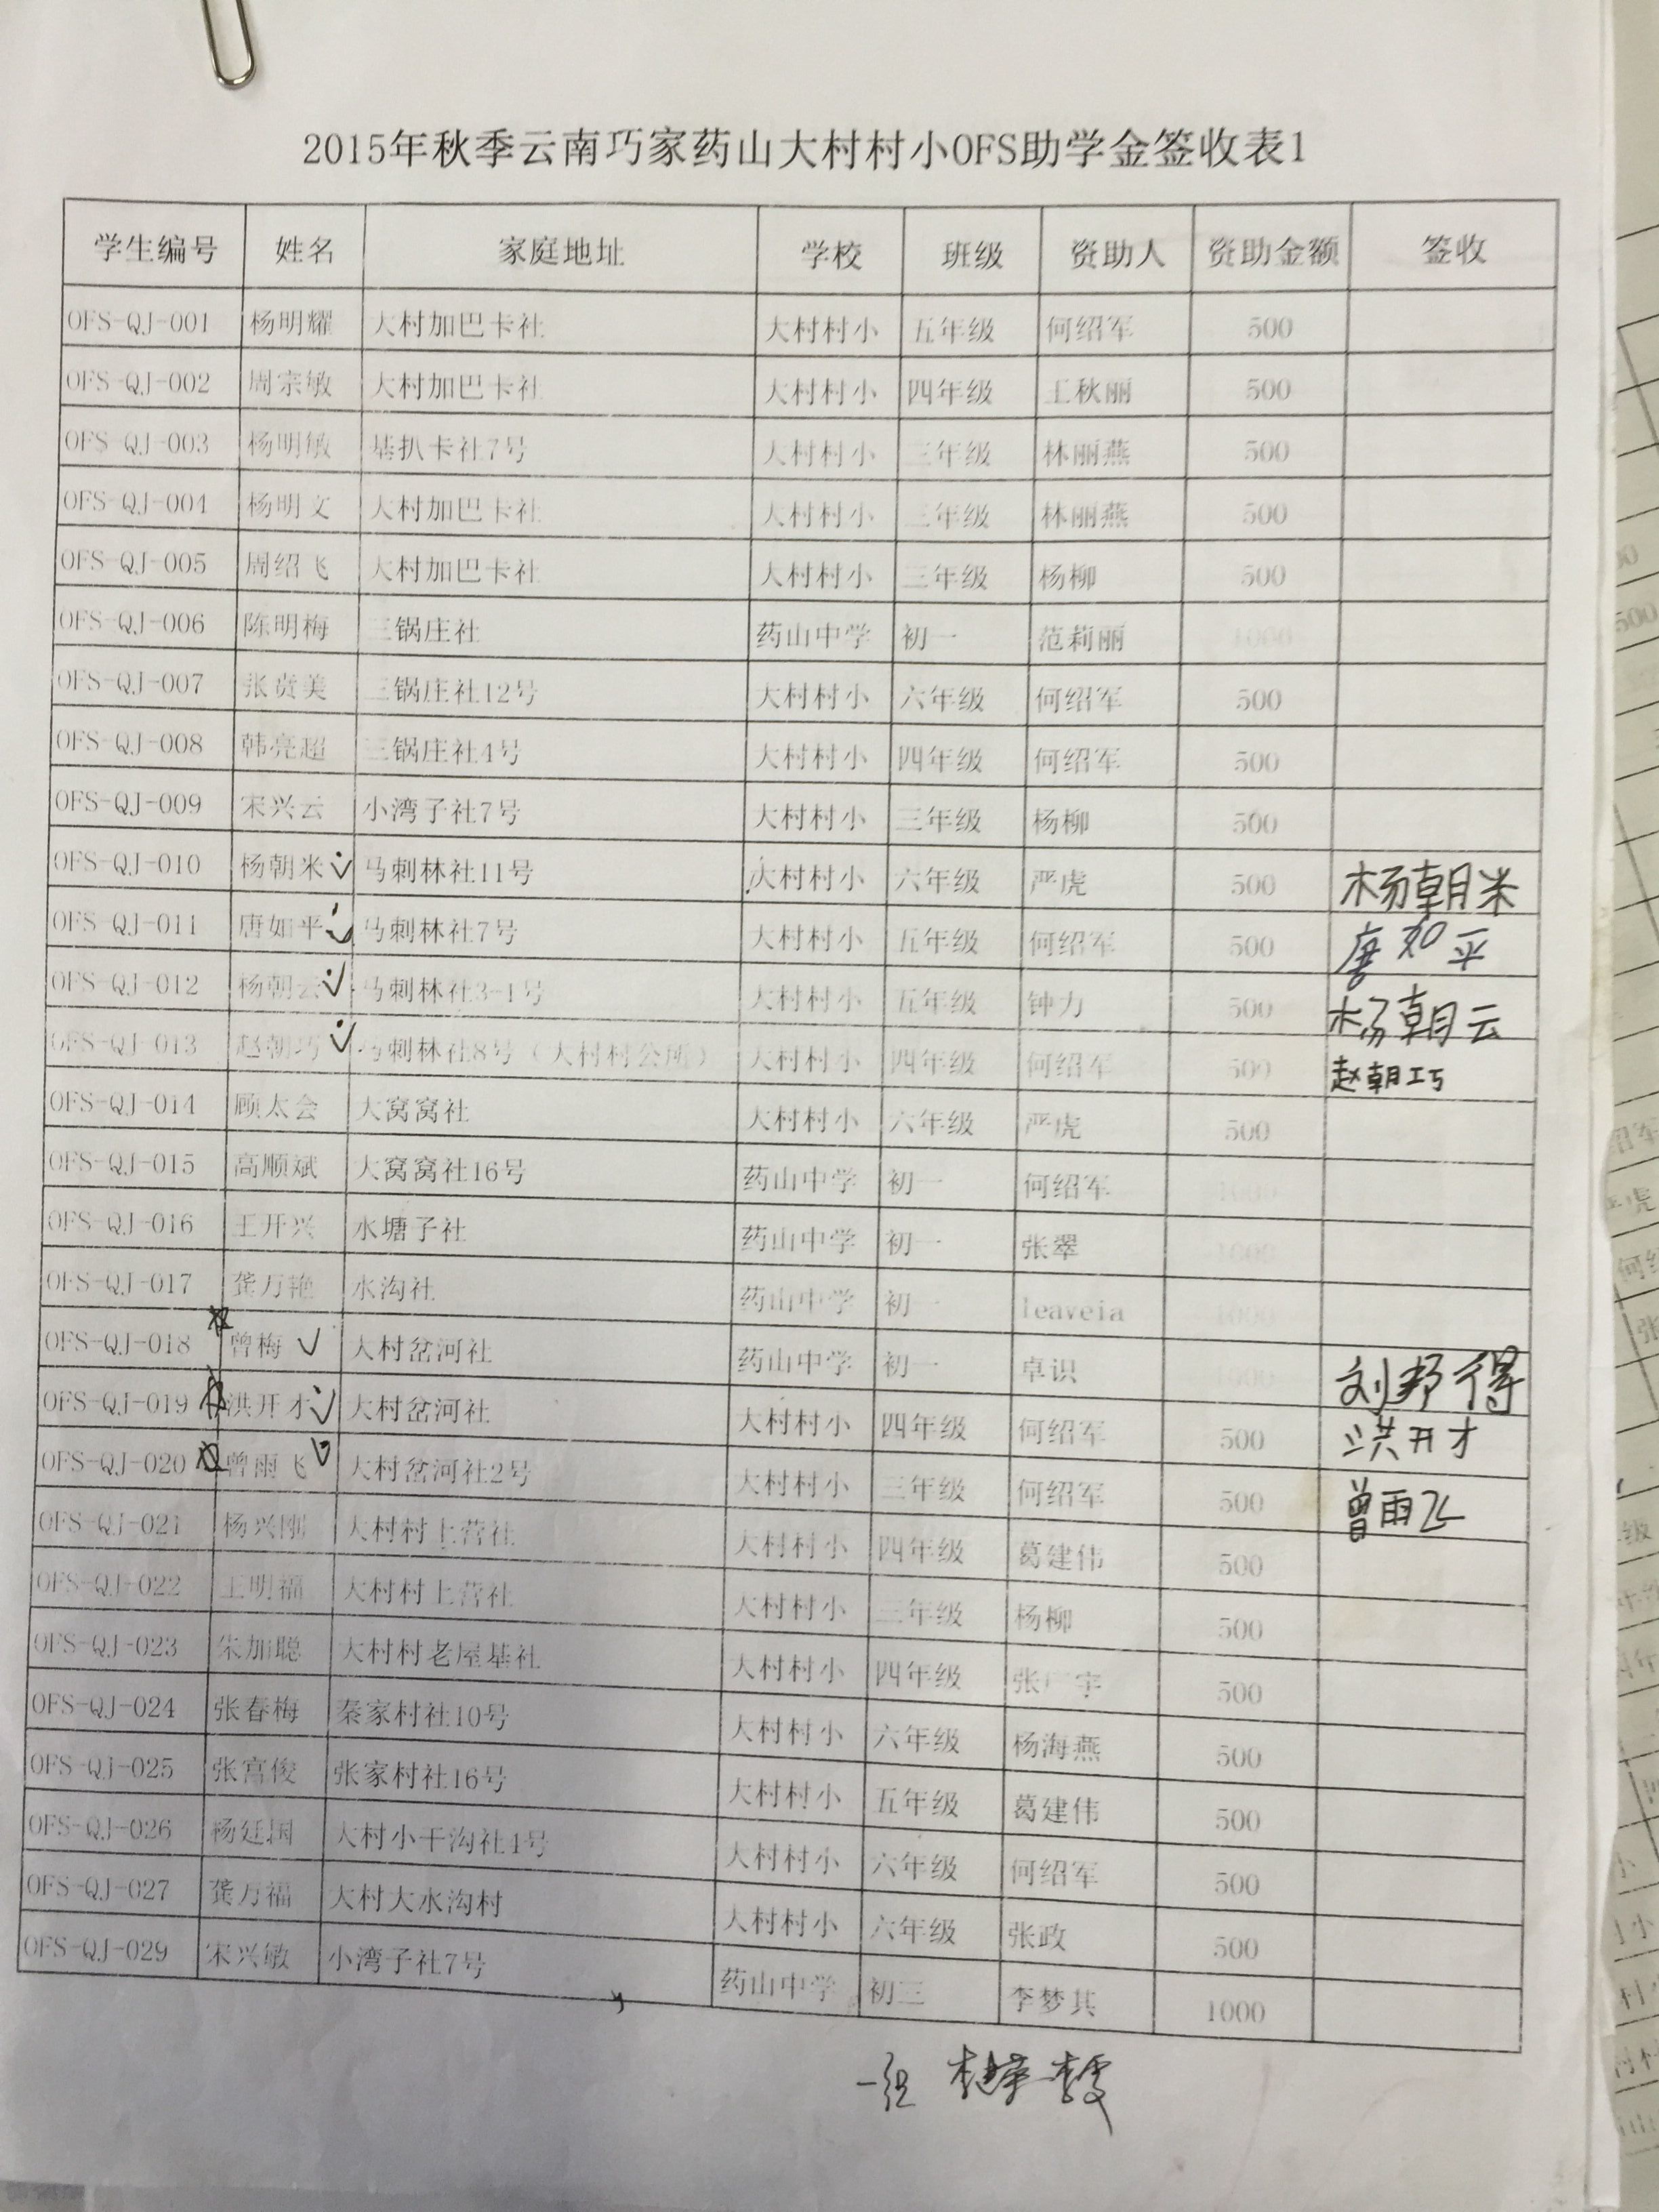 2015年秋季云南巧家药山大村村小OFS助学金签收表1
学生编号 姓名 家庭地址 学校 班级 资助人 资助金额 签收
OFS-QJ-001 杨明耀 大村加巴卡社 大村村小 五年级 何绍军 500
OFS-QJ-002 周宗敏 大村加巴卡社 大村村小 四年级 王秋丽 500
OFS-QJ-003 杨明敏 基扒卡社7号 大村村小 三年级 林丽燕 500
OFS-QJ-004 杨明文 大村加巴卡社 大村村小 三年级 林丽燕 500
OFS-QJ-005 周绍飞 大村加巴卡社 大村村小 三年级 杨柳 500
OFS-QJ-006 陈明梅 三锅庄社 药山中学 初一 范莉丽 1000
OFS-QJ-007 张贵美 三锅庄社12号 大村村小 六年级 何绍军 500
OFS-QJ-008 韩亮超 三锅庄社4号 大村村小 四年级 何绍军 500
OFS-QJ-009 宋兴云 小湾子社7号 大村村小 三年级 杨柳 500
OFS-QJ-010 杨朝米 马刺林社11号 大村村小 六年级 严虎 500 杨朝米
OFS-QJ-011 唐如平 马刺林社7号 大村村小 五年级 何绍军 500 唐如平
OFS-QJ-012 杨朝云 马刺林社3-1号 大村村小 五年级 钟力 500 杨朝云
OFS-QJ-013 赵朝巧 马刺林社8号（大村村公所） 大村村小 四年级 何绍军 500 赵朝巧
OFS-QJ-014 顾太会 大窝窝社 大村村小 六年级 严虎 500
OFS-QJ-015 高顺斌 大窝窝社16号 药山中学 初一 何绍军 1000
OFS-QJ-016 王开兴 水塘子社 药山中学 初一 张翠 1000
OFS-QJ-017 龚万艳 水沟社 药山中学 初一 leaveia 1000
OFS-QJ-018 曾梅 大村岔河社 药山中学 初一 卓识 1000 刘邦得
OFS-QJ-019 洪开才 大村岔河社 大村村小 四年级 何绍军 500 洪开才
OFS-QJ-020 曾雨飞 大村岔河社2号 大村村小 三年级 何绍军 500 曾雨飞
OFS-QJ-021 杨兴刚 大村村上营社 大村村小 四年级 葛建伟 500
OFS-QJ-022 王明福 大村村上营社 大村村小 三年级 杨柳 500
OFS-QJ-023 朱加聪 大村村老屋基社 大村村小 四年级 500
OFS-QJ-024 张春梅 秦家村社10号 大村村小 六年级 杨海燕 500
OFS-QJ-025 张富俊 张家村社16号 大村村小 五年级 葛建伟 500
OFS-QJ-026 杨廷国 大村小干沟社4号 大村村小 六年级 何绍军 500
OFS-QJ-027 龚万福 大村大水沟村 大村村小 六年级 张政 500
OFS-QJ-029 宋兴敏 小湾子社7号 药山中学 初三 李梦其 1000
一组